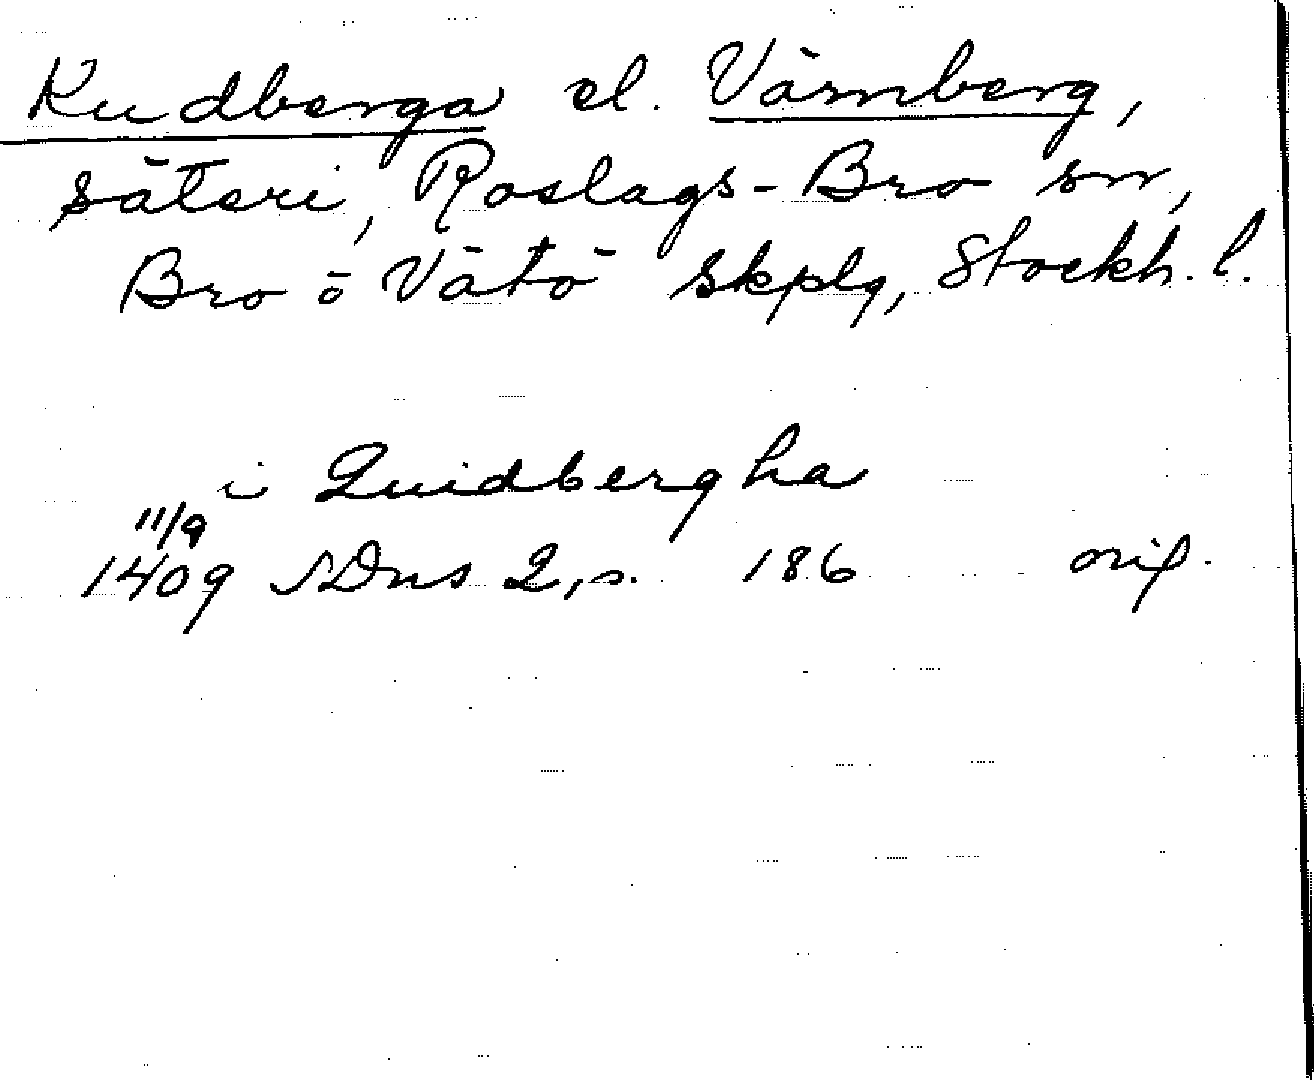 Kudberga el. Värnberg,
säteri, Roslags-Bro sn,
Bro o Vätö skplg, Stockh. l.
i Quidbergha
11/9
1409 SDns 2, s. 186 orig.